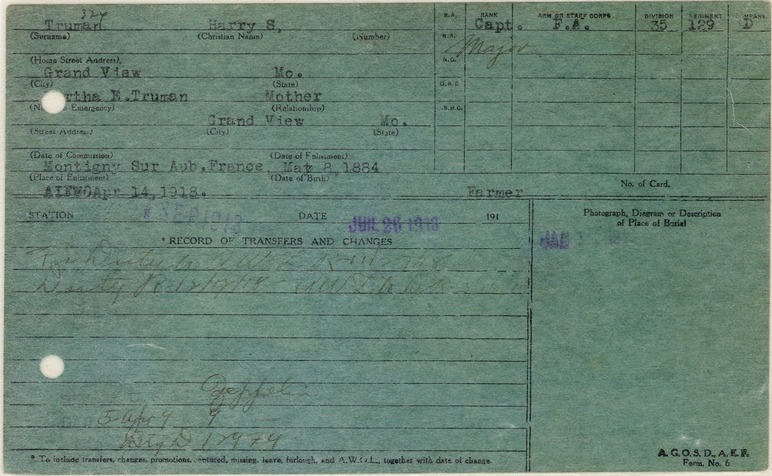 324
Truman Harry S, Capt. F.A. 35 129 D
(Surname) (Christian Name) (Number)
R.A. RANK ARM OR STAFF CORPS. DIVISION REGIMENT COMPANY
N.A. Major
N.G.
O.R.C.
E.R.C.
(Home Street Address),
Grand View Mo.
(City) (State)
rtha E.Truman Mother
Emergency) (Relationship)
Grand View Mo.
(Street Address) (City) (State)
(Date of Commission) (Date of Enlistment)
Montigny Sur Aub,France Mat 8,1884
(Place of Enlistment) (Date of Birth)
Apr 14,1918. Farmer
No. of Card.
STATION DATE JUL 26 1918 191
Photograph, Diagram or Description
of Place of Burial
JAN
* RECORD OF TRANSFERS AND CHANGES
Duty
Zeppelin
5 Apr 9 9
Bty D 129 F A
* To include transfers, changes, promotions, captured, missing, leave, furlough, and A.W.O.L., together with date of change.
A. G. O. S. D., A. E. F.
Form. No. 6